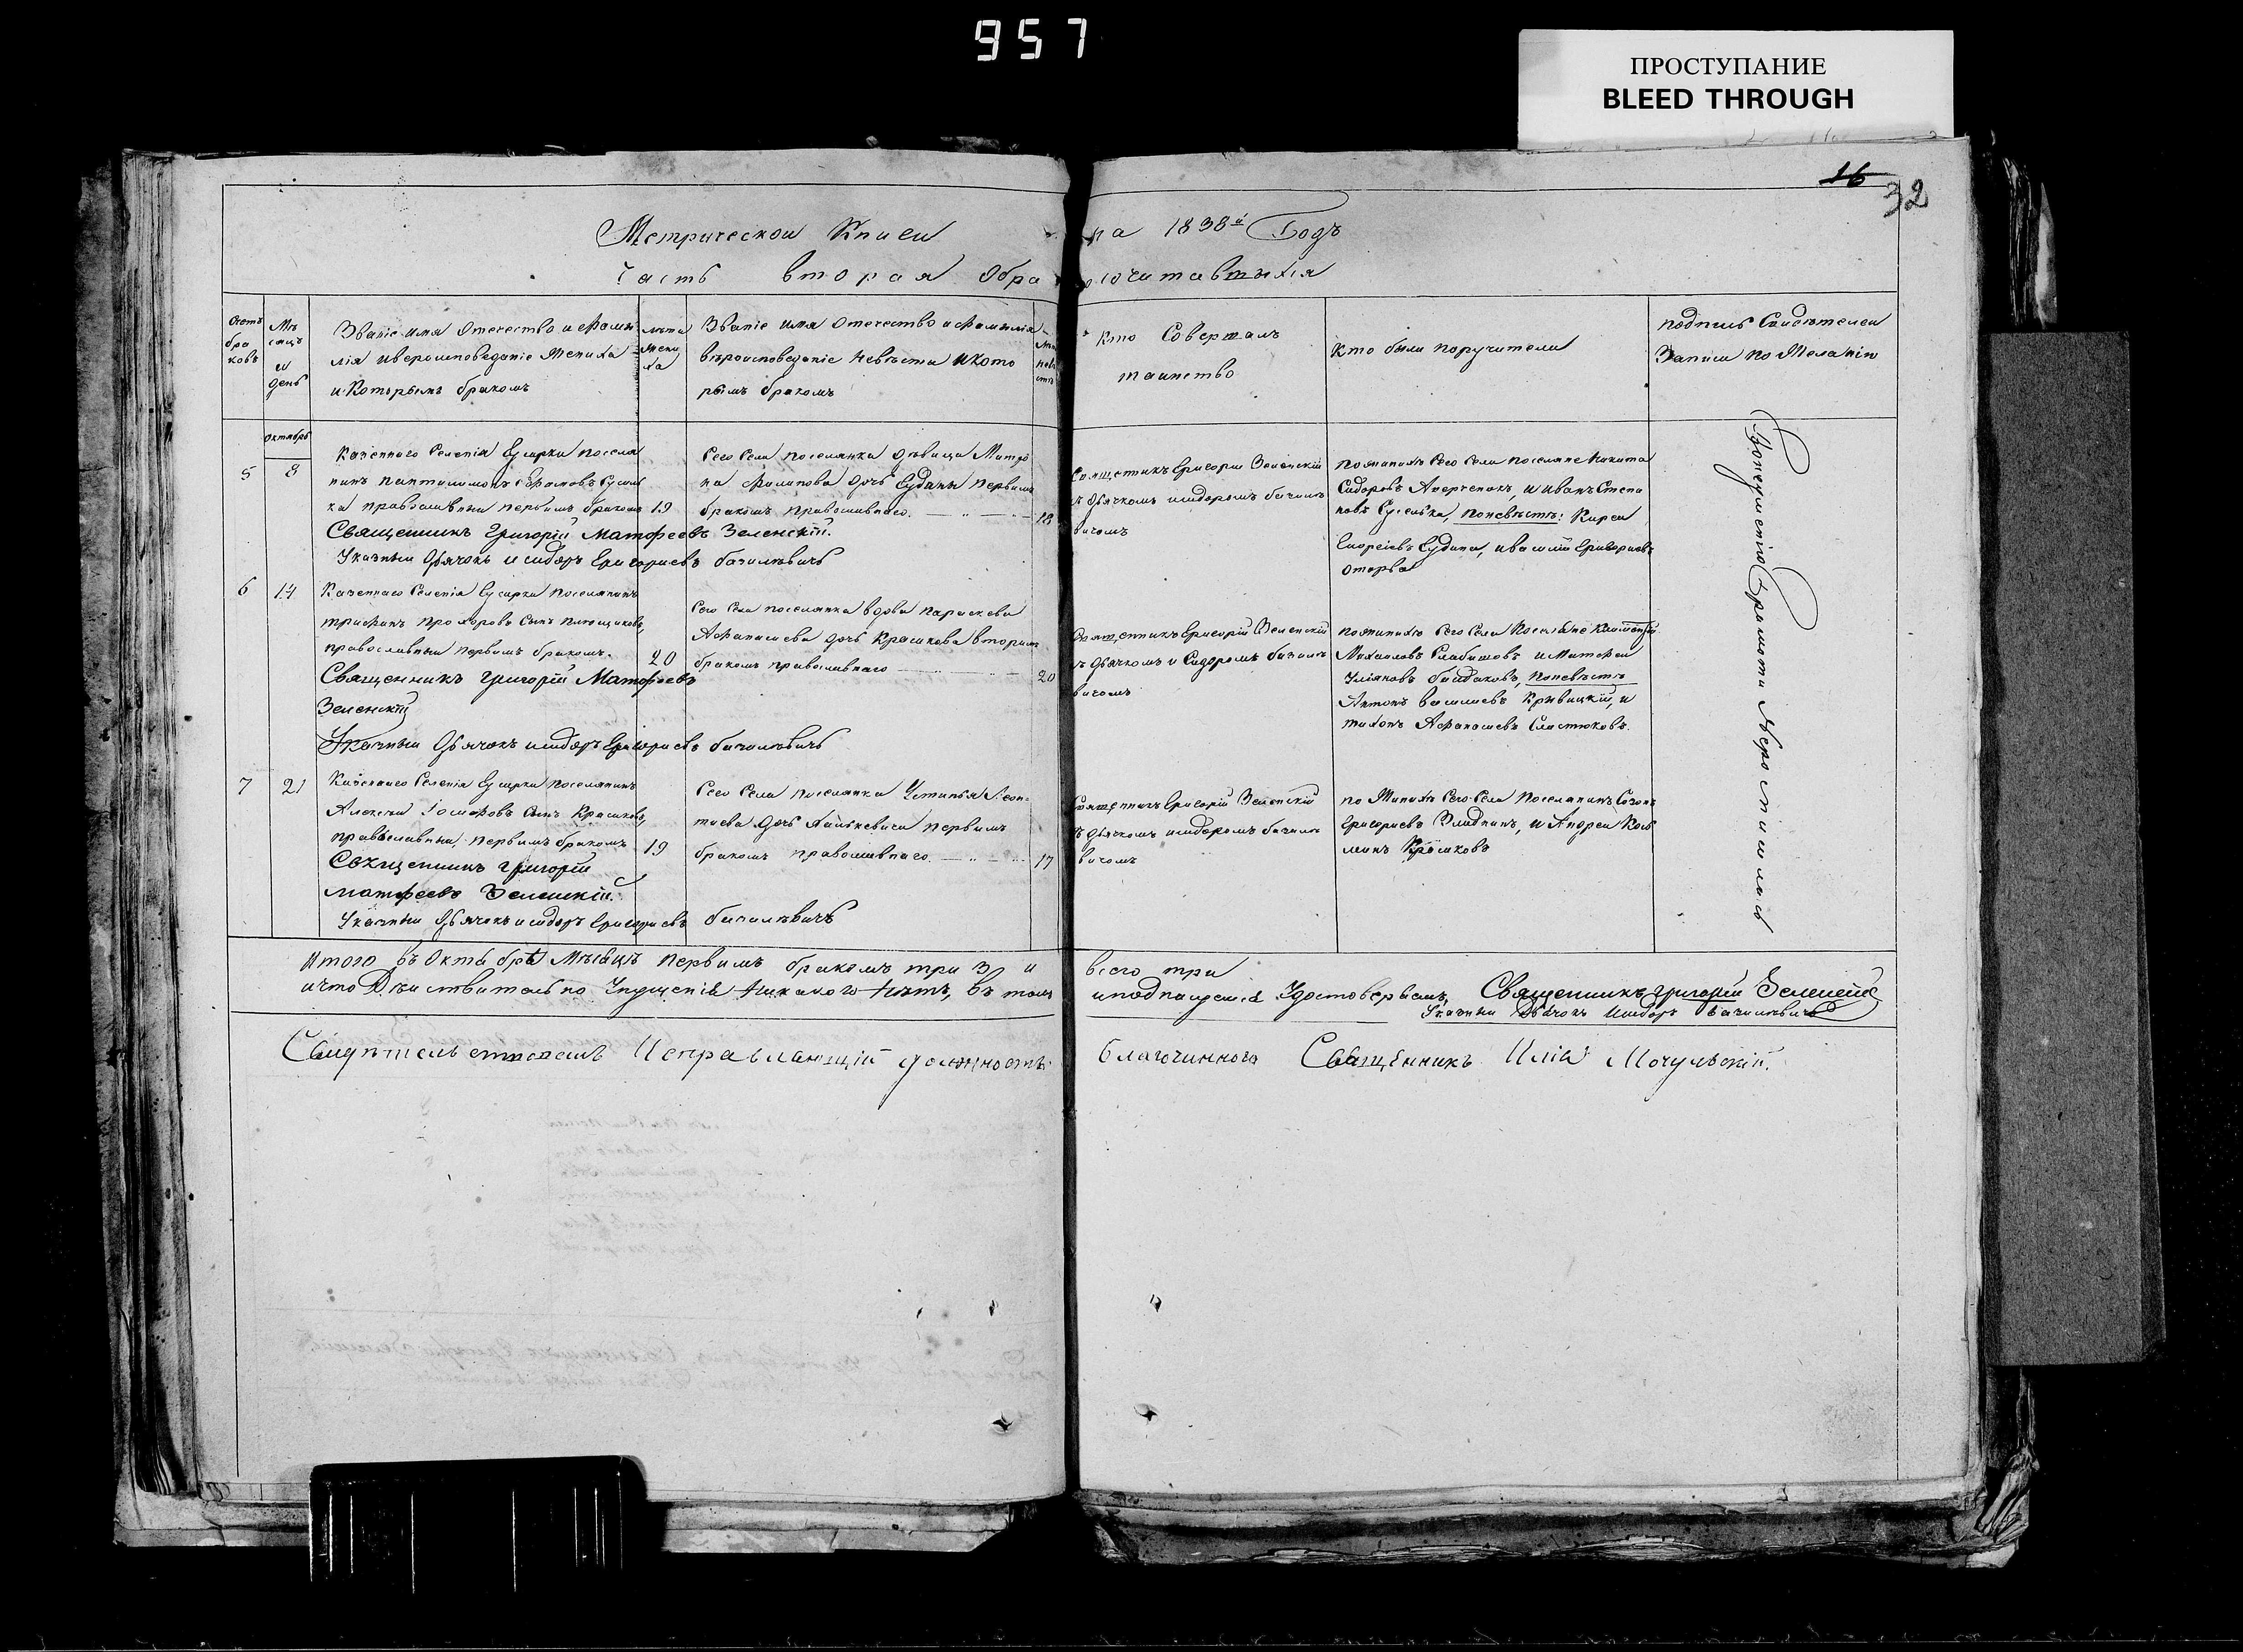 957
ПРОСТУПАНИЕ
BLEED THROUGH
16
32
Метрической Книги на 1838й Годъ
Часть вторая о бракосочитавшихся
Счетъ браковъ
Мѣсяцъ и день
Званіе имя отечество и фами
лія и вероисповеданіе Жениха
и Которымъ бракомъ
лѣта Жениха
Званіе имя отечество и фамилія
вѣроисповеданіе невѣсты и кото
рымъ бракомъ
лѣта невѣсты
Кто Совершалъ
таинство
Кто были поручители
подпись Свидѣтелей
Записи по Желанію
Октябрь
5
8
Казеннаго Селенія Гусарки поселя
нинъ пантилимонъ
ка православный первымъ бракомъ
19
Священникъ Григорій Матфеевъ Зеленскій.
Указный Дьячокъ исидоръ Григориевъ базилѣвичъ
Сего Села поселянка дѣвица Матро
на Филипова дочь Гудыны первымъ
бракомъ православнаго.
18
Священникъ Григорій Зеленскій
съ дьячкомъ исидоромъ базилѣ
вичомъ
по жениху Сего Села поселяне Никита
Сидоровъ и иванъ Степа
новъ поневѣстѣ: Кирей
Георгіевъ Гудына, и василій Григориевъ
6
14
Казеннаго Селенія Гусарки поселянинъ
трифонъ прохоровъ Сынъ
православный первымъ бракомъ.
20
Священникъ Григорій Матфеевъ
Зеленскій
Указный Дьячокъ исидоръ Григориевъ базилѣвичъ
Сего Села поселянка вдова параскева
Афанасиева дочь Красикова вторымъ
бракомъ православнаго
20
Священникъ Григорій Зеленскій
съ дьячкомъ исидоромъ базилѣ
вичомъ
по жениху Сего Села Поселяне
Михаиловъ и Матфей
Уліяновъ байдаковъ, поневѣсте
Антонъ василиевъ Кривицкій, и
тихонъ Афанасиевъ Сластюковъ.
7
21
Казеннаго Селенія Гусарки поселянинъ
Алексей Іосифовъ Сынъ Красиковъ,
православный, первымъ бракомъ
19
Священникъ Григорій
матфеевъ Зеленскій.
Указный Дьячокъ исидоръ Григориевъ базилѣвичъ
Сего Села поселянка Устинья Леон
тиева дочь первымъ
бракомъ православнаго
17
Священникъ Григорій Зеленскій
съ дьячкомъ исидоромъ базилѣ
вичомъ
по Жениху Сего Села Поселянинъ Созонъ
Григориевъ и Андрей
По неумѣнію Грамоти
Итого въ Октябрѣ Мѣсяцѣ первымъ бракомъ три 3 и всего три
и что Дѣйствительно Упущенія никакого нѣтъ, въ томъ и подписуемся Удостовѣряемъ, Священникъ Григорій Зеленскій
Указный Дьячокъ Исидоръ Базилѣвичъ
Свидѣтельствовалъ Исправляющій должность благочиннаго Священникъ Илія Мочульскій.